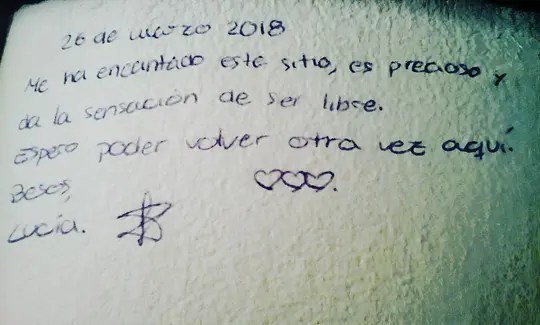 26 de marzo 2018
Me ha encantado este sitio, es precioso y
da la sensación de ser libre.
Espero poder volver otra vez aquí.
Besos,
Lucía.